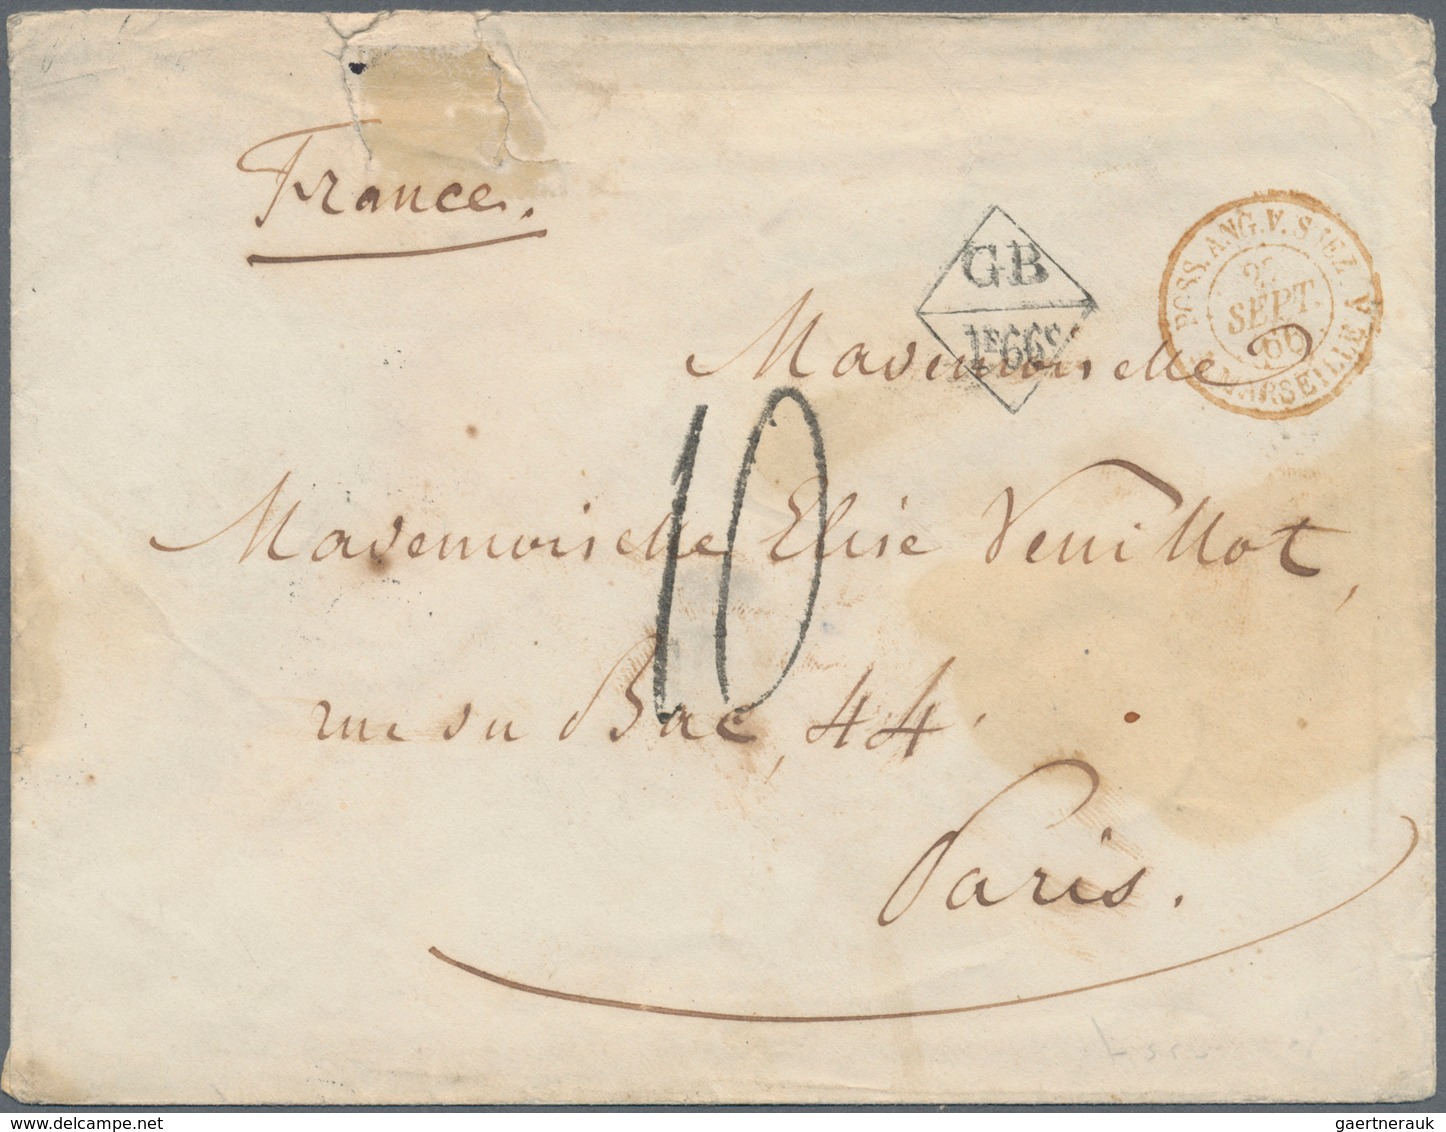 France.
GB
1F66c
POSS. ANG. V. SUEZ A MARSEILLE
SEPT.
66
Mademoiselle
10
Mademoiselle Elise Veuillot,
rue du Bac, 44.
Paris.
gaertnerauk / delcampe.net